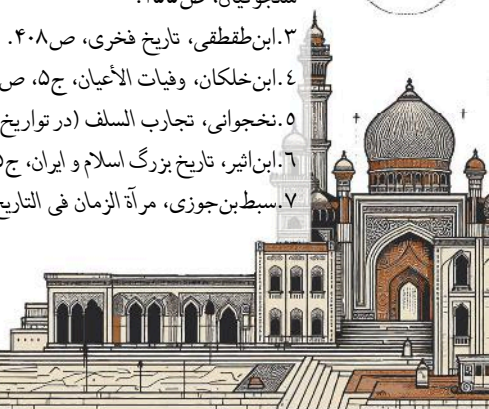 سلجوقیان، ص۲۵۵.
۳.ابن‌طقطقی، تاریخ فخری، ص۴۰۸.
٤.ابن‌خلکان، وفیات الأعیان، ج۵، ص
۵.نخجوانی، تجارب السلف (در تواریخ
٦.ابن‌اثیر، تاریخ بزرگ اسلام و ایران، ج۵
۷.سبط‌بن‌جوزی، مرآة الزمان فی التاریخ